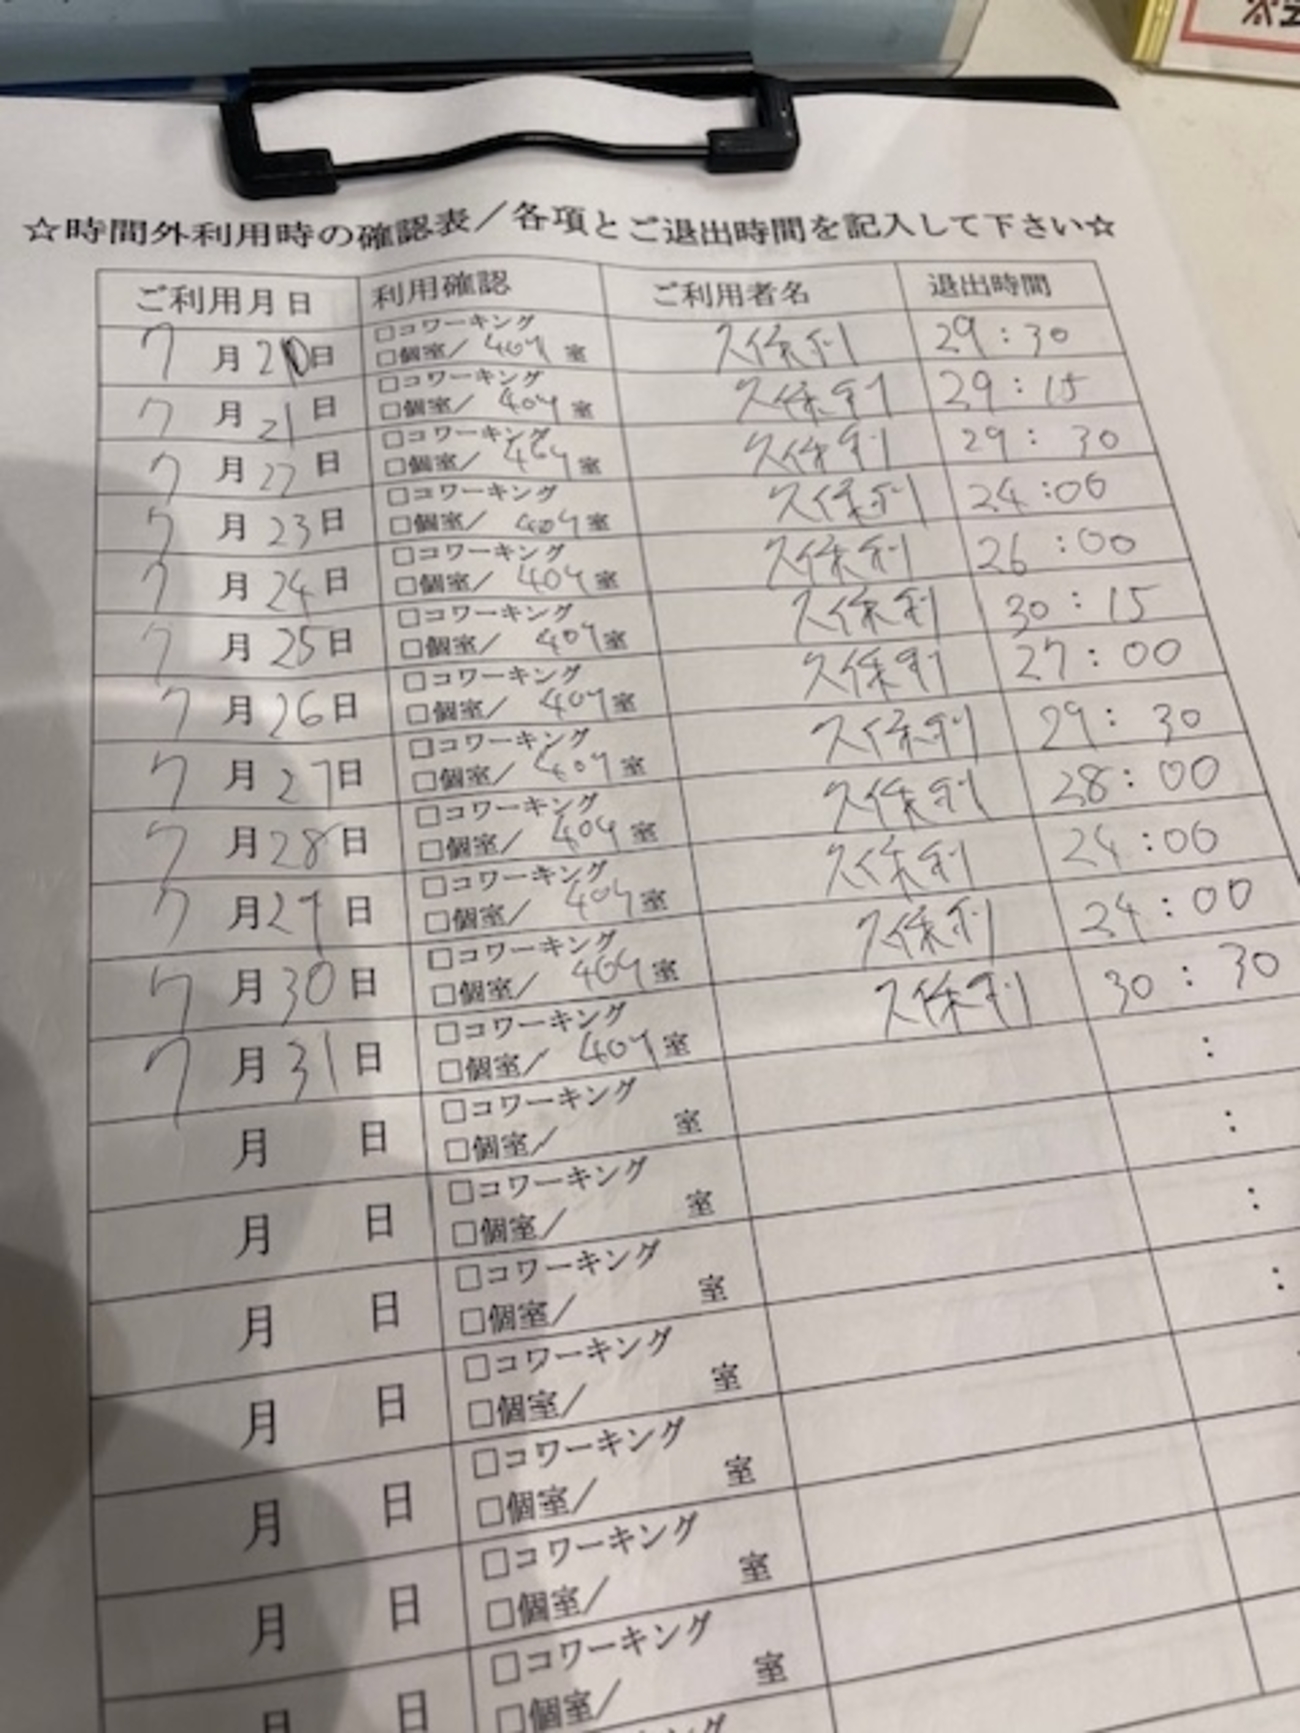 ☆時間外利用時の確認表／各項とご退出時間を記入して下さい☆
ご利用月日 利用確認 ご利用者名 退出時間
7月20日 □コワーキング □個室／404室 久保利 29:30
7月21日 □コワーキング □個室／404室 久保利 29:15
7月22日 □コワーキング □個室／404室 久保利 29:30
7月23日 □コワーキング □個室／404室 久保利 24:00
7月24日 □コワーキング □個室／404室 久保利 26:00
7月25日 □コワーキング □個室／404室 久保利 30:15
7月26日 □コワーキング □個室／404室 久保利 27:00
7月27日 □コワーキング □個室／404室 久保利 29:30
7月28日 □コワーキング □個室／404室 久保利 28:00
7月29日 □コワーキング □個室／404室 久保利 24:00
7月30日 □コワーキング □個室／404室 久保利 24:00
7月31日 □コワーキング □個室／404室 久保利 30:30
月 日 □コワーキング □個室／ 室 :
月 日 □コワーキング □個室／ 室 :
月 日 □コワーキング □個室／ 室 :
月 日 □コワーキング □個室／ 室 :
月 日 □コワーキング □個室／ 室
月 日 □コワーキング □個室／ 室
月 日 □コワーキング □個室／ 室